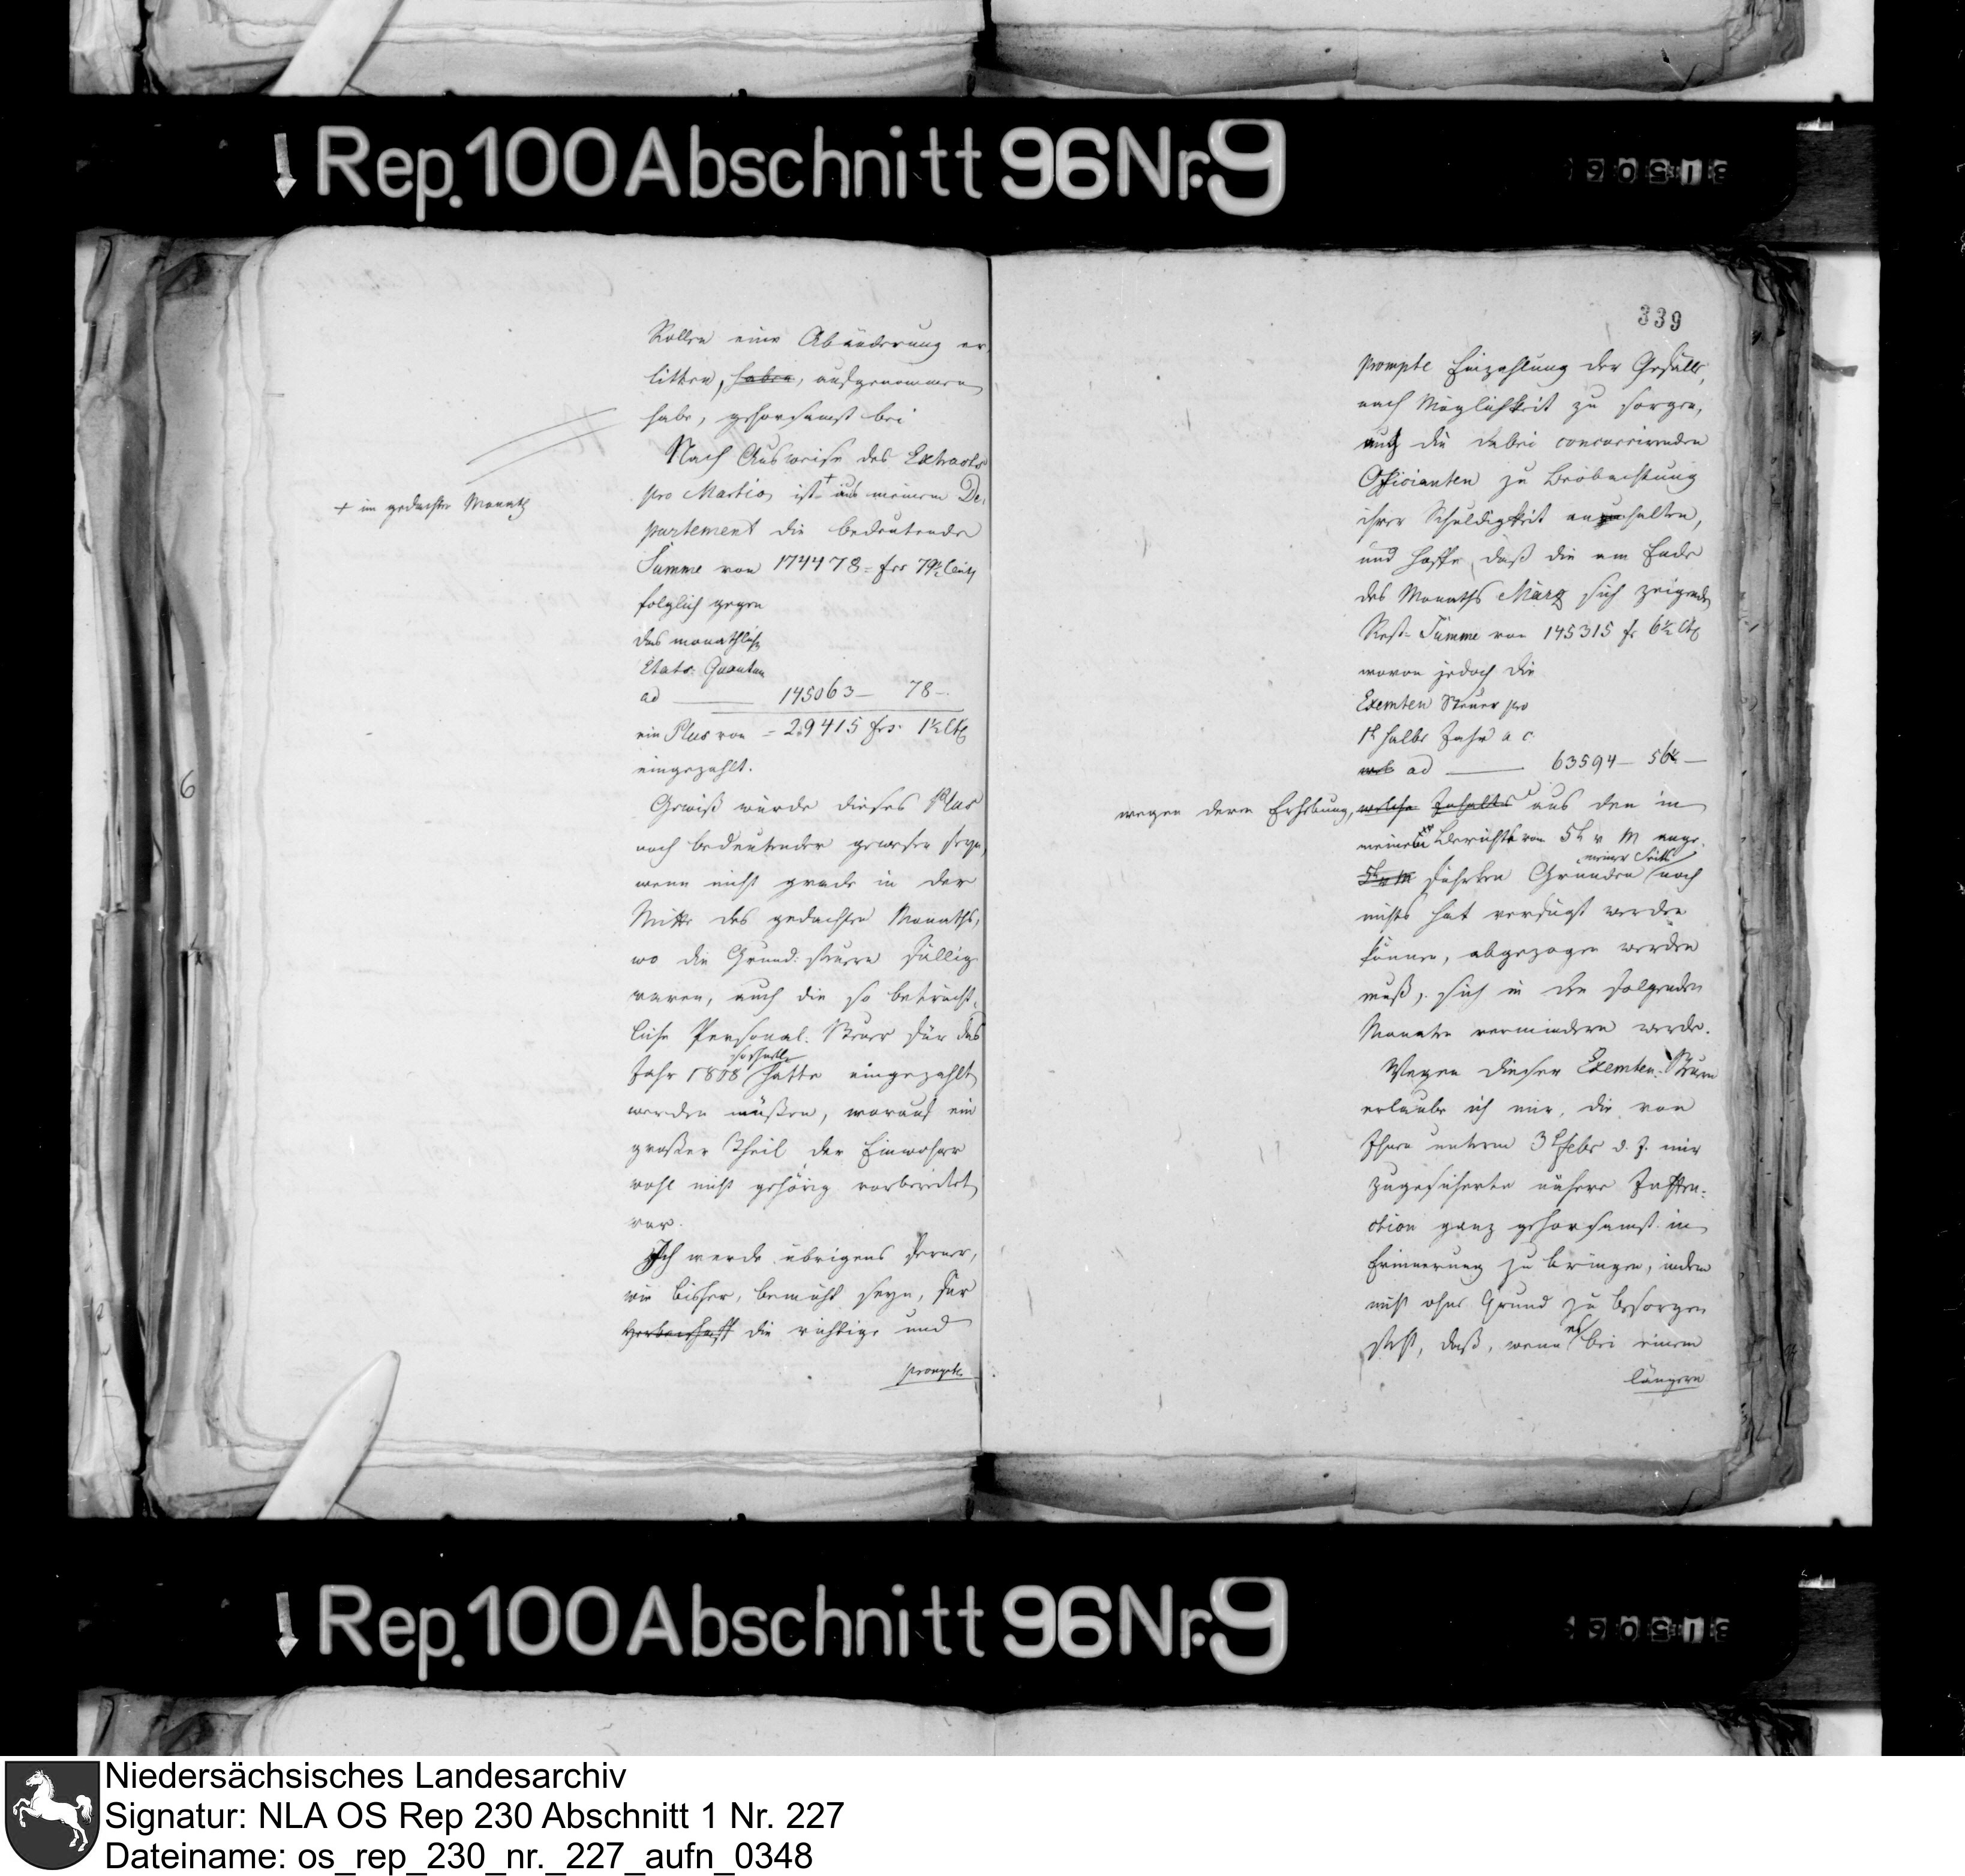 Rep. 100 Abschnitt 96 Nr. 9
Rollen eine Abänderung er
litten, haben, ausgenommen
habe, gehorsamst bei
Nach Ausweise des Extracts
pro Martio ist + aus meinem De-
+ im gedachten Monath
partement die bedeutende
Summe von 174478 = frs 79½ Cent
folglich gegen
das monathliche
Etats-Quantum
ad — 145063 — 78 —
ein Plus von = 29415 frs. 1½ Ct
eingezahlt.
Gewiß würde dieses Plus
noch bedeutender gewesen seyn,
wenn nicht grade in der
Mitte des gedachten Monaths,
wo die Grund-steuern fällig
waren, auch die so beträcht-
liche Personal-Steuer für das
Jahr 1808 hätte eingezahlt
werden müßen, worauf ein
großer Theil der Einwohner
wohl nicht gehörig vorbereitet
war.
Ich werde übrigens ferner,
wie bisher, bemüht seyn, für
die richtige und
prompte
339
prompte Einzahlung der Gefälle,
nach Möglichkeit zu sorgen,
auch die dabei concurrirenden
Officianten zu Beobachtung
ihrer Schuldigkeit anzuhalten,
und hoffe, daß die am Ende
des Monaths März sich zeigende
Rest-Summe von 145315 fr 6½ Ct
wovon jedoch die
Exemten Steuer pro
1t halbe Jahr a c.
ad — 63594 — 56½ —
wegen deren Erhebung, welche Inhalts aus den in
meinem Berichte vom 5t v M ange-
meiner Seits
5t v M führten Gründen noch
nichts hat verfügt werden
können, abgezogen werden
muß, sich in den folgenden
Monaten vermindern werde.
Wegen dieser Exemten-Steuern
erlaube ich mir, die von
Ihnen unterm 3t Febr d. J. mir
zugesicherte nähere Instru-
ction ganz gehorsamst in
Erinnerung zu bringen, indem
nicht ohne Grund zu besorgen
steht, daß, wenn es bei einem
längern
6
Rep. 100 Abschnitt 96 Nr. 9
Niedersächsisches Landesarchiv
Signatur: NLA OS Rep 230 Abschnitt 1 Nr. 227
Dateiname: os_rep_230_nr._227_aufn_0348